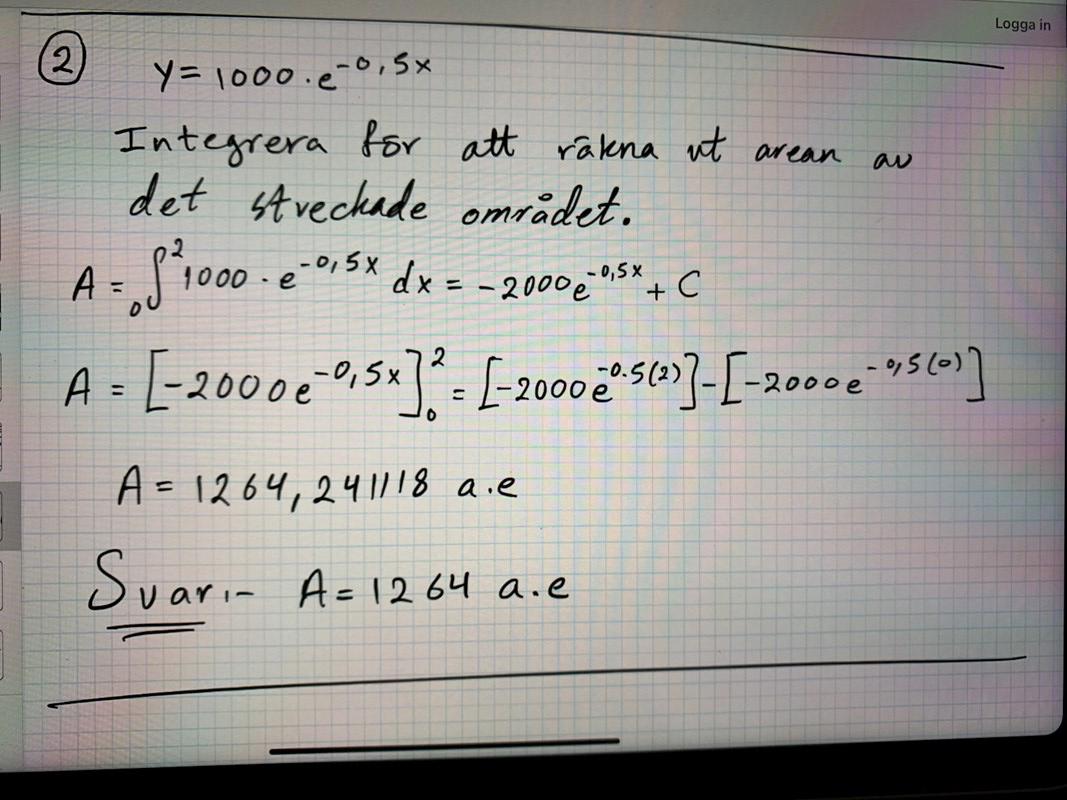 Logga in
② y = 1000 · e^{-0,5x}
Integrera för att räkna ut arean av
det streckade området.
A = ₀∫² 1000 · e^{-0,5x} dx = -2000e^{-0,5x} + C
A = [-2000e^{-0,5x}]₀² = [-2000e^{-0.5(2)}] - [-2000e^{-0,5(0)}]
A = 1264,241118 a.e
Svar:- A = 1264 a.e